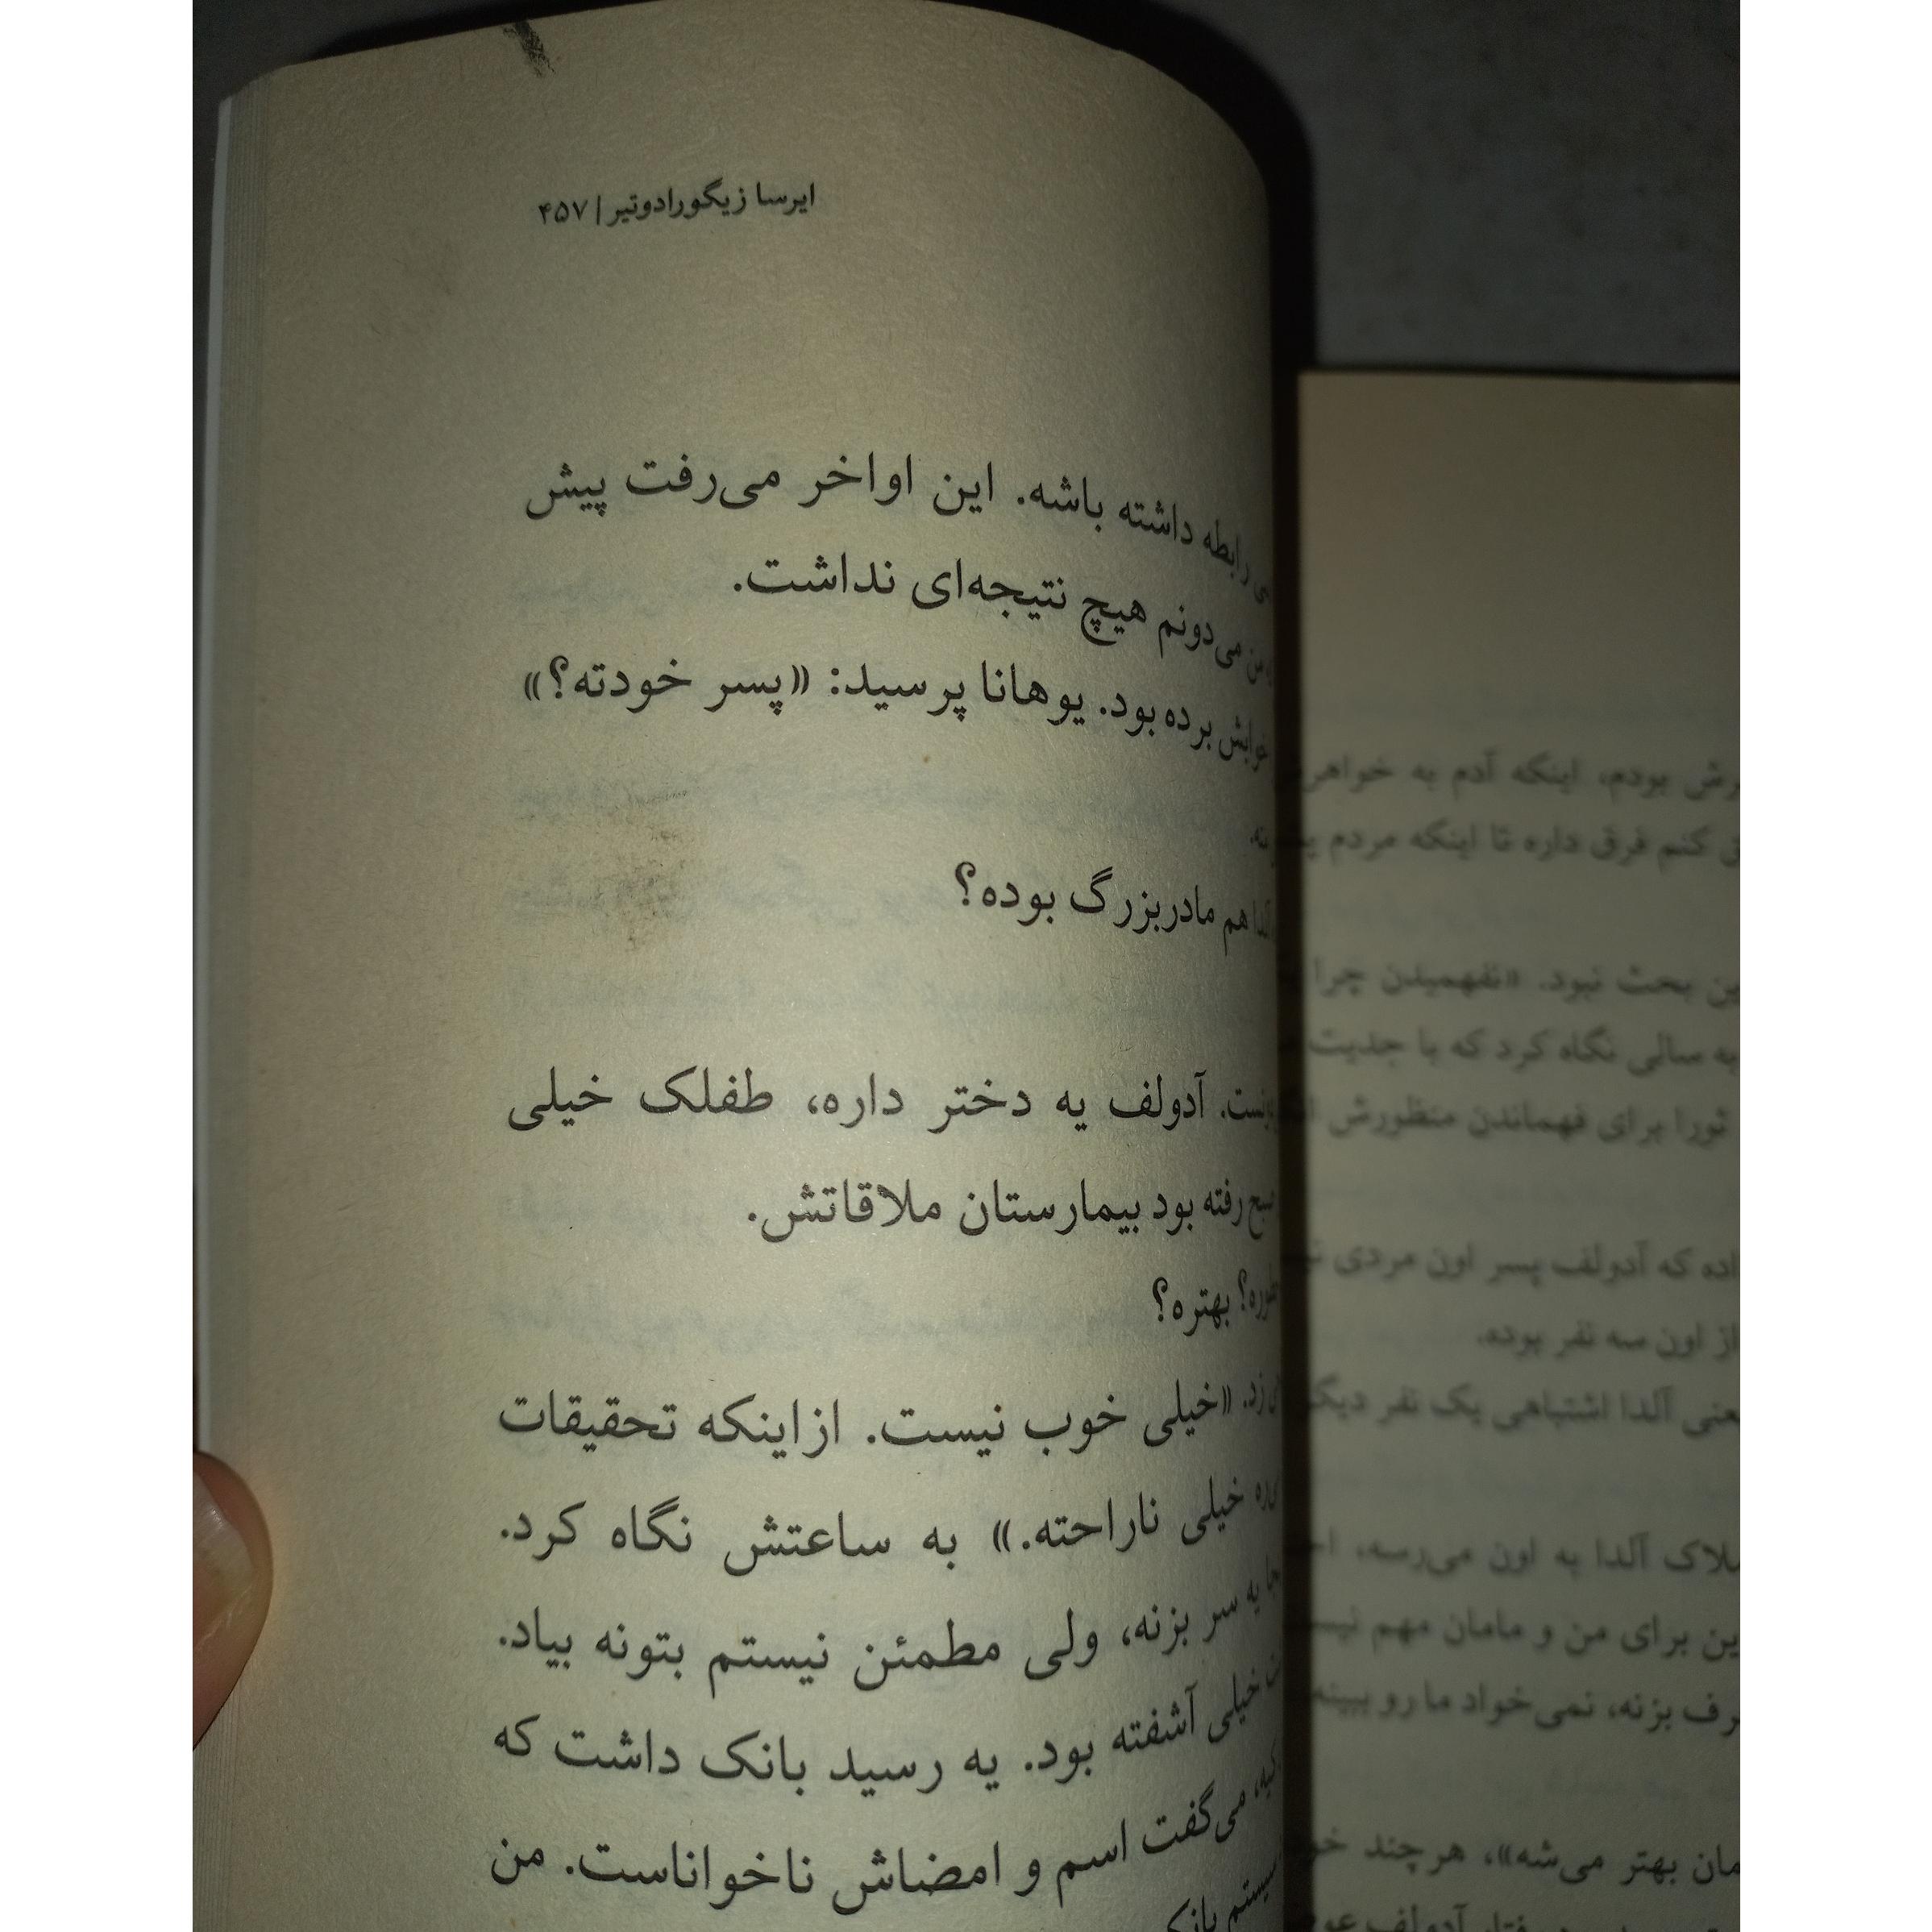 ایرسا زیگورادوتیر | ۴۵۷
رابطه داشته باشه. این اواخر می‌رفت پیش
من می‌دونم هیچ نتیجه‌ای نداشت.
خوابش برده بود. یوهانا پرسید: «پسر خودته؟»
هم مادربزرگ بوده؟
آدولف یه دختر داره، طفلک خیلی
صبح رفته بود بیمارستان ملاقاتش.
بهتره؟
زد. «خیلی خوب نیست. ازاینکه تحقیقات
خیلی ناراحته.» به ساعتش نگاه کرد.
یه سر بزنه، ولی مطمئن نیستم بتونه بیاد.
خیلی آشفته بود. یه رسید بانک داشت که
می‌گفت اسم و امضاش ناخواناست. من
سیستم
بودم، اینکه آدم به
کنم فرق داره تا اینکه مردم
بحث نبود. «نفهمیدن چرا
به سالی نگاه کرد که با جدیت
ثورا برای فهماندن منظورش
که آدولف پسر اون مردی
از اون سه نفر بوده.
آلدا اشتباهی یک نفر
آلدا به اون می‌رسه،
برای من و مامان مهم
بزنه، نمی‌خواد ما رو
بهتر می‌شه»، هرچند
آدولف